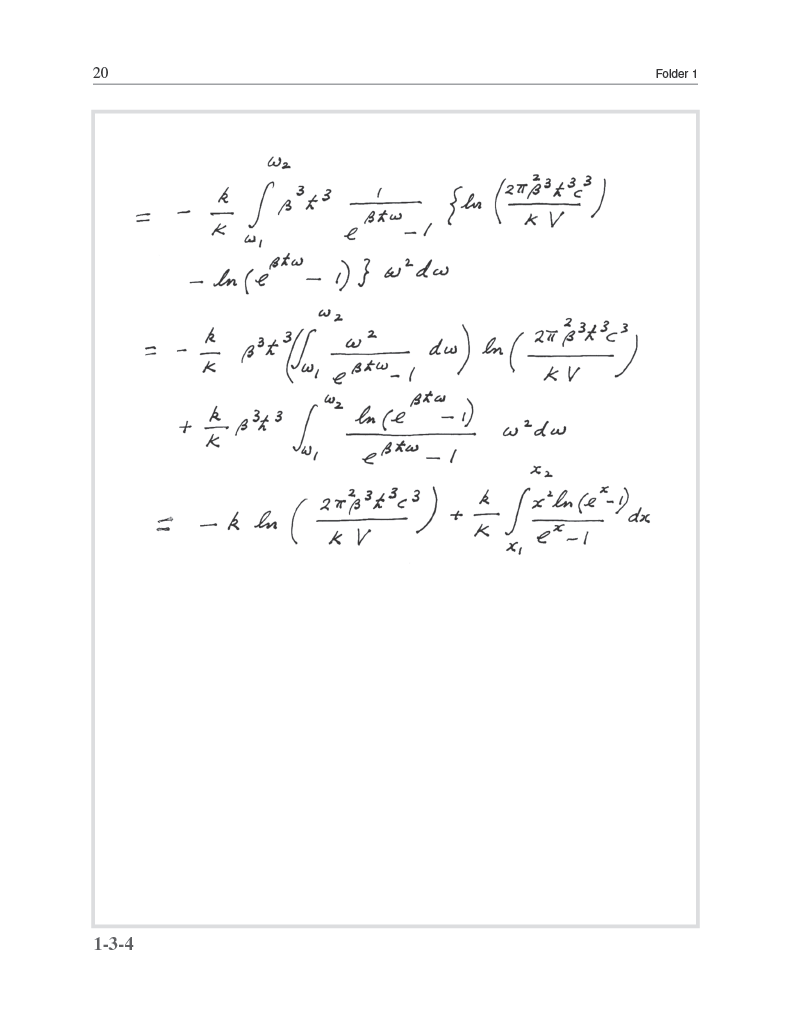 20 Folder 1
= - k/K ∫_{ω₁}^{ω₂} β³ħ³ 1/(e^{βħω} - 1) {ln (2π²β³ħ³c³/(K V))
- ln (e^{βħω} - 1)} ω² dω
= - k/K β³ħ³ (∫_{ω₁}^{ω₂} ω²/(e^{βħω} - 1) dω) ln (2π²β³ħ³c³/(K V))
+ k/K β³ħ³ ∫_{ω₁}^{ω₂} ln (e^{βħω} - 1)/(e^{βħω} - 1) ω² dω
= - k ln (2π²β³ħ³c³/(K V)) + k/K ∫_{x₁}^{x₂} x² ln (e^x - 1)/(e^x - 1) dx
1-3-4